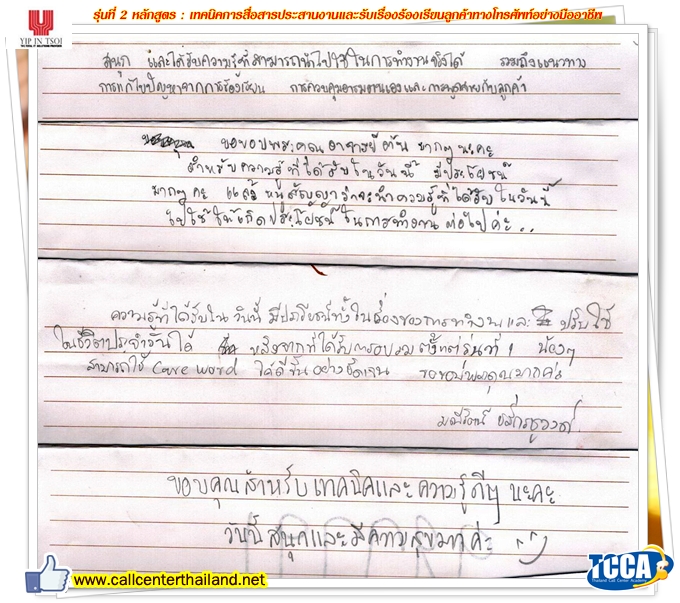 YIP IN TSOI
รุ่นที่ 2 หลักสูตร : เทคนิคการสื่อสารประสานงานและรับเรื่องร้องเรียนลูกค้าทางโทรศัพท์อย่างมืออาชีพ
สนุก และได้รับความรู้ที่สามารถนำไปใช้ในการทำงานจริงได้ รวมถึงแนวทาง
การแก้ไขปัญหาจากการร้องเรียน การควบคุมอารมณ์ตนเองและการพูดสายกับลูกค้า
ขอขอบพระคุณ อาจารย์ มากๆ นะคะ
สำหรับความรู้ที่ได้รับในวันนี้ มีประโยชน์
มากๆ คะ แล้ว หนูสัญญาว่าจะนำความรู้ที่ได้รับในวันนี้
ไปใช้ให้เกิดประโยชน์ในการทำงานต่อไปค่ะ..
ความรู้ที่ได้รับใน วันนี้ มีประโยชน์ทั้งในเรื่องของการทำงานและ ปรับใช้
ในชีวิตประจำวันได้ หลังจากที่ได้รับการอบรมตั้งแต่รุ่นที่ 1 น้องๆ
สามารถใช้ Care word ได้ดีขึ้นอย่างชัดเจน ขอขอบพระคุณมากค่ะ
ขอบคุณสำหรับเทคนิคและความรู้ดีๆ นะคะ
วันนี้ สนุกและมีความสุขมากค่ะ
www.callcenterthailand.net
TCCA
Thailand Call Center Academy